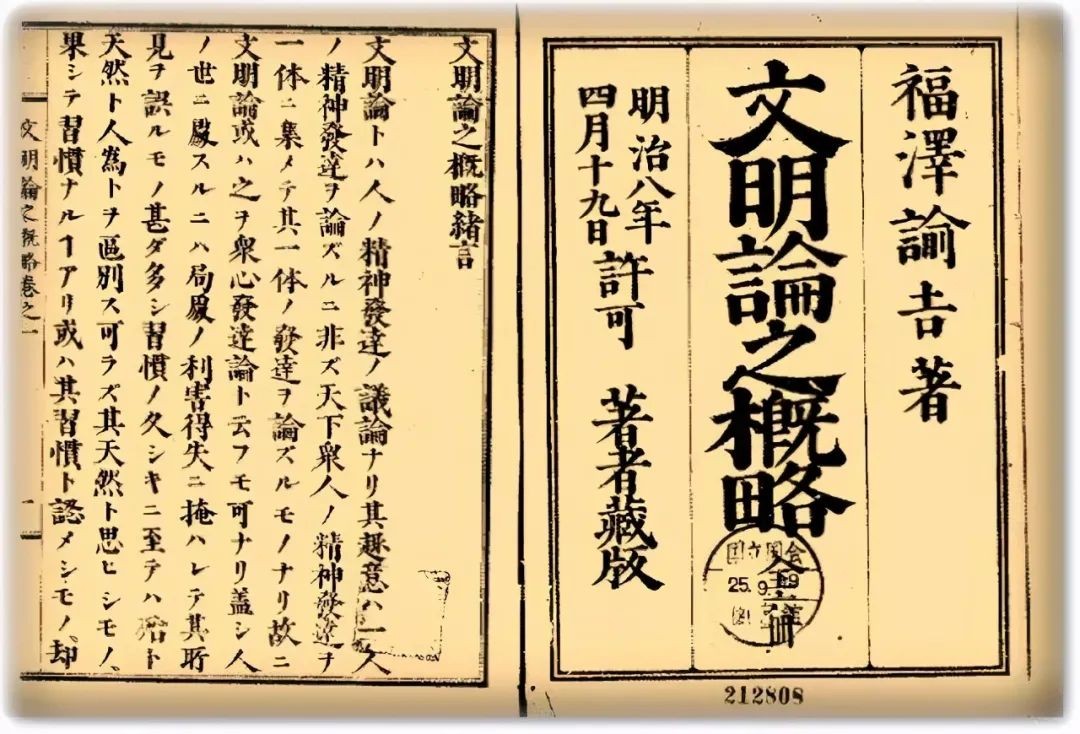 福澤諭吉著
文明論之概略 全六冊
明治八年
四月十九日 許可 著者藏版
国立国会
25.9.
212808
文明論之概略緒言
文明論トハ人ノ精神發達ノ議論ナリ其趣意ハ一人
ノ精神發達ヲ論ズルニ非ズ天下衆人ノ精神發達ヲ
一体ニ集メテ其一体ノ發達ヲ論ズルモノナリ故ニ
文明論或ハ之ヲ衆心發達論ト云フモ可ナリ蓋シ人
ノ世ニ處スルニハ局處ノ利害得失ニ掩ハレテ其所
見ヲ誤ルモノ甚ダ多シ習慣ノ久シキニ至テハ殆ト
天然ト人爲トヲ區別ス可ラズ其天然ト思ヒシモノ、
果シテ習慣ナルヿアリ或ハ其習慣ト認メシモノ、却
文明論之概略卷之一
一